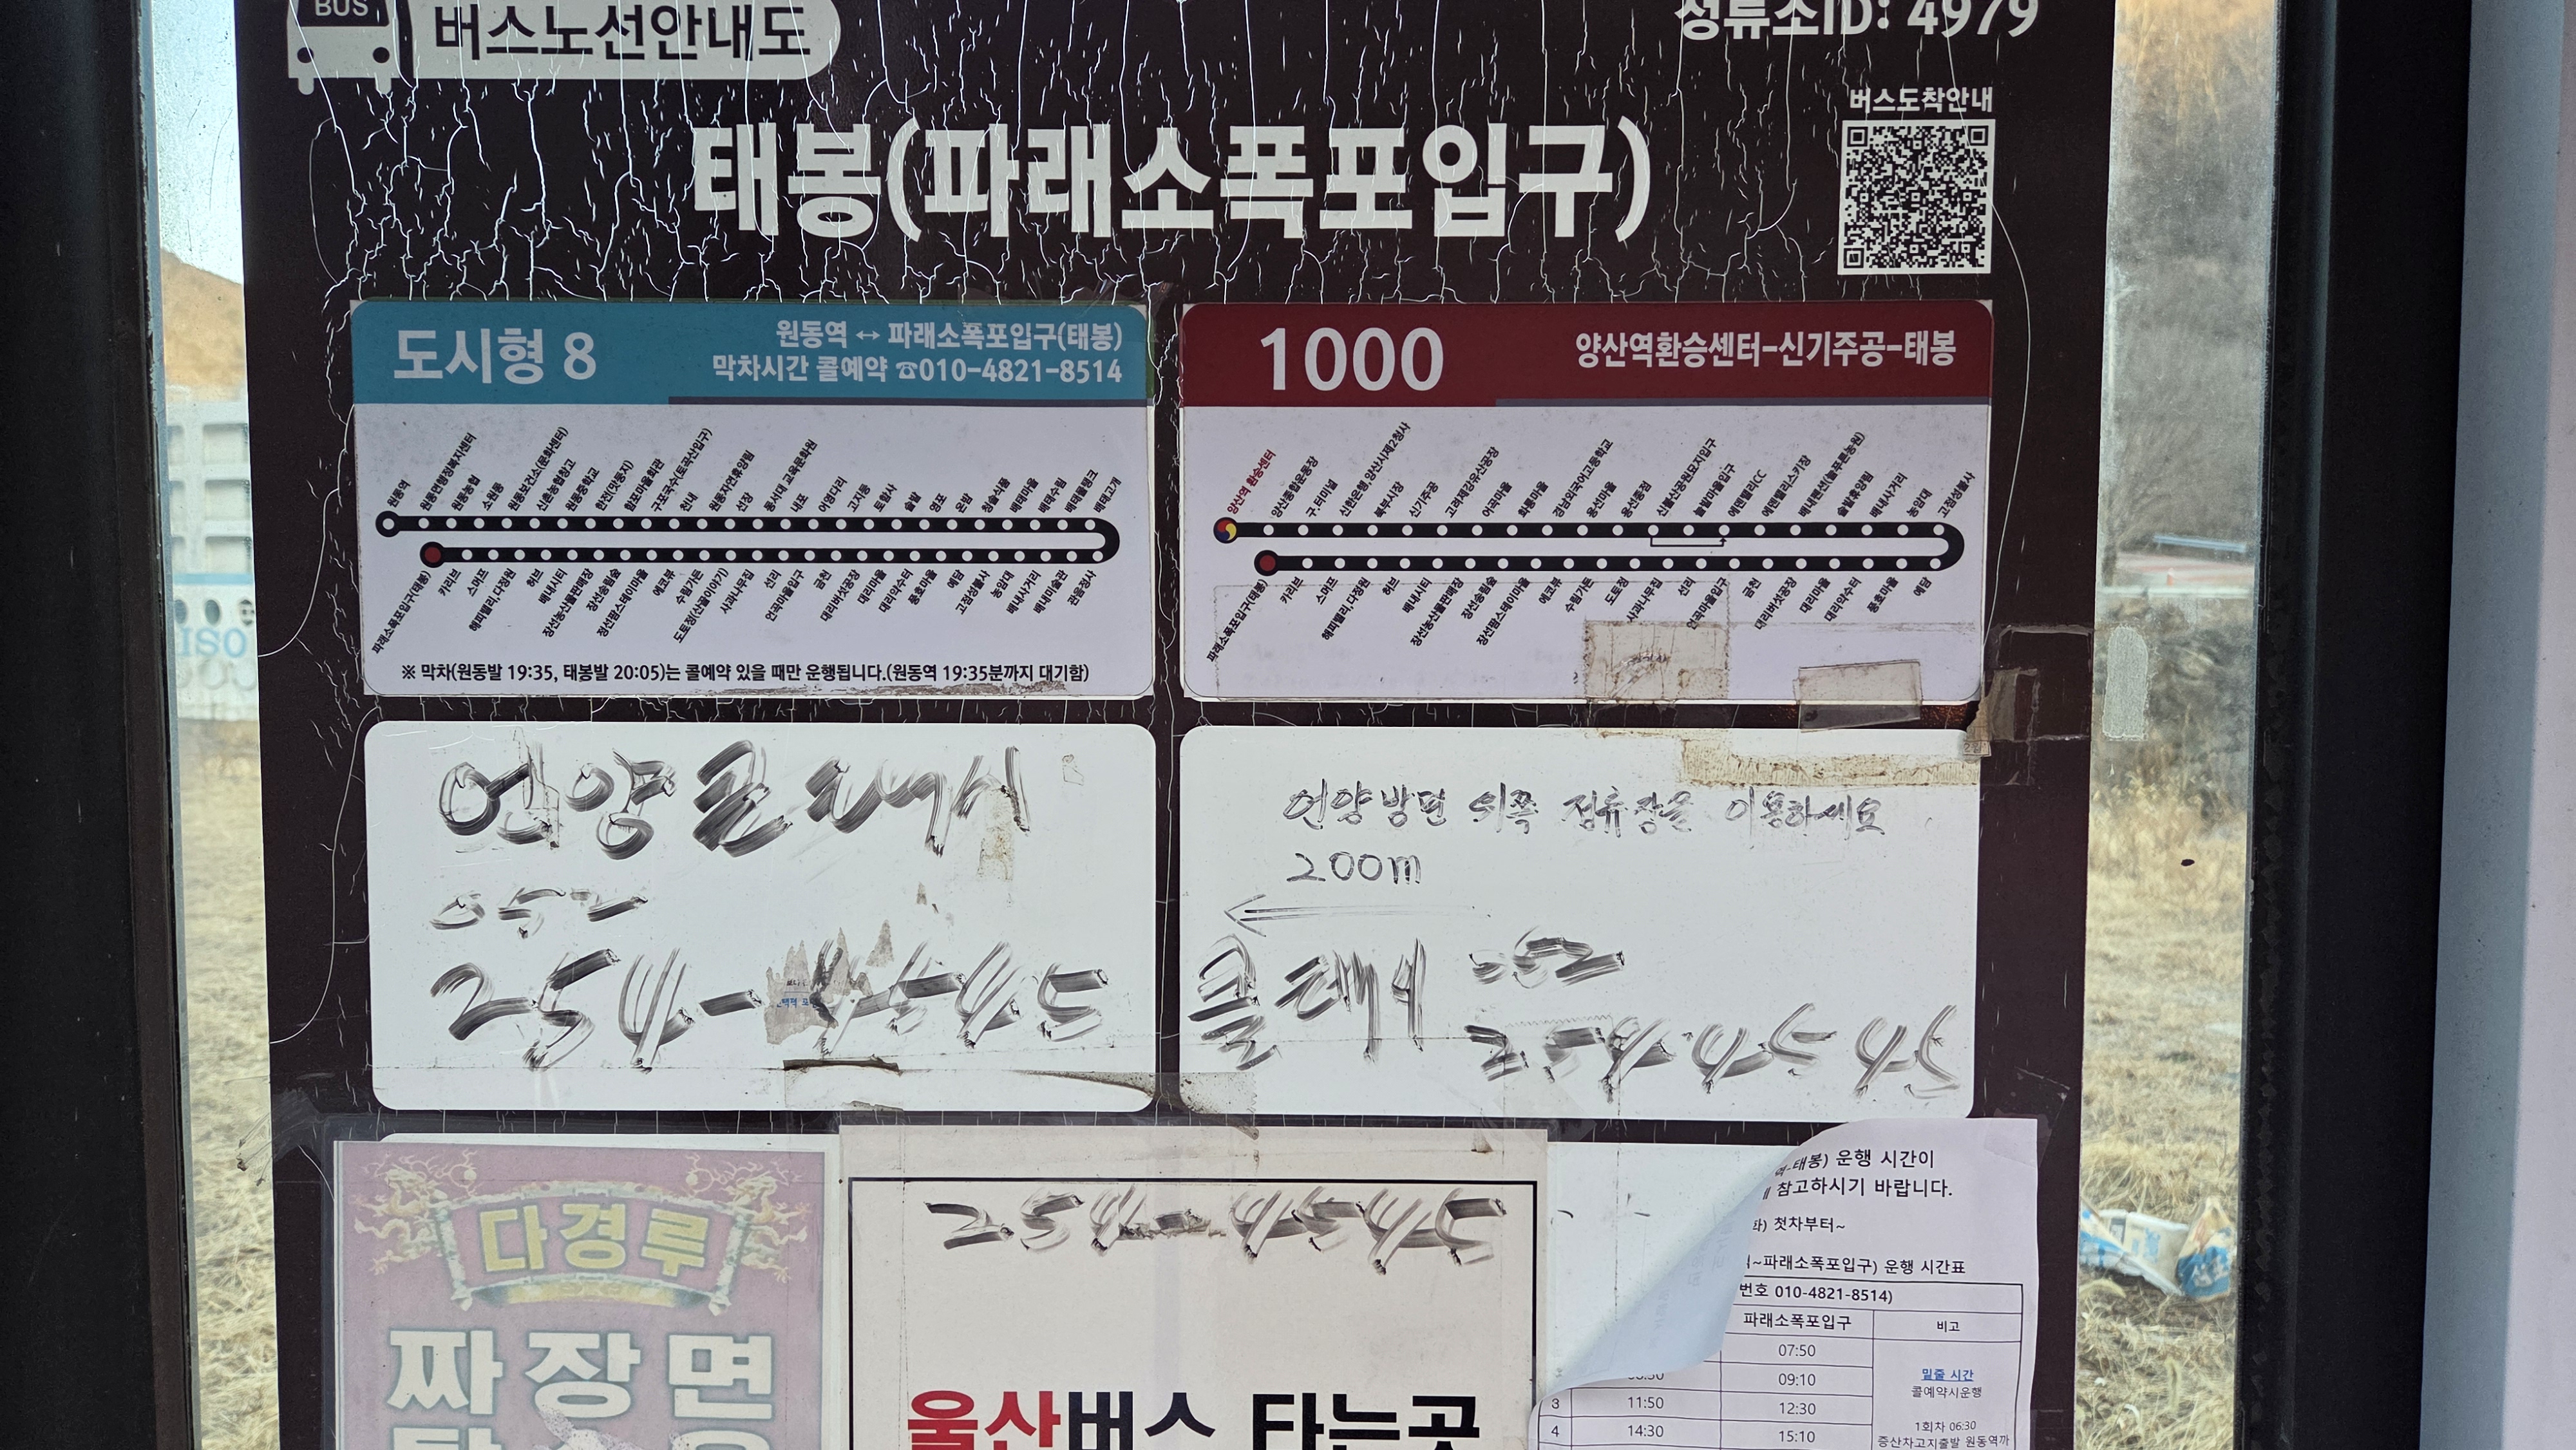 BUS
버스노선안내도
정류소ID: 4979
버스도착안내
태봉(파래소폭포입구)
도시형 8
원동역 ↔ 파래소폭포입구(태봉)
막차시간 콜예약 ☎010-4821-8514
원동역
원동면행정복지센터
원동농협
소원동
원동보건소(문화센터)
신촌농협창고
원동중학교
한전(맛둥지)
함포마을회관
구포국수(토곡산입구)
천내
원동자연휴양림
선장
동서대 교육문화원
내포
어영다리
고지등
토향사
술발
영포
온밤
청솔식품
배태마을
배태수림
배태물탱크
배태고개
파래소폭포입구(태봉)
카리브
스머프
해피밸리,다정원
허브
배내시티
장선농산물판매장
장선송림숲
장선팜스테이마을
에코뷰
수림가든
도토정(산골이야기)
사과나무집
선리
언곡마을입구
금천
대리버섯공장
대리마을
대리약수터
풍호마을
예담
고점성불사
농암대
배내사거리
배내미술관
관음정사
※ 막차(원동발 19:35, 태봉발 20:05)는 콜예약 있을 때만 운행됩니다.(원동역 19:35분까지 대기함)
1000
양산역환승센터-신기주공-태봉
양산역 환승센터
양산종합운동장
구.터미널
신한은행.양산시제2청사
북부시장
신기주공
고려제강유산공장
어곡마을
화룡마을
경남외국어고등학교
용선마을
용선종점
신불산공원묘지입구
늘밭마을입구
에덴밸리CC
에덴밸리스키장
배내펜션(늘푸른농원)
술발휴양림
배내사거리
농암대
고점성불사
파래소폭포입구(태봉)
카리브
스머프
해피밸리,다정원
허브
배내시티
장선농산물판매장
장선송림숲
장선팜스테이마을
에코뷰
수림가든
도토정
사과나무집
선리
언곡마을입구
금천
대리버섯공장
대리마을
대리약수터
풍호마을
예담
언양콜택시
052
254-4545
언양방면 뒤쪽 정류장을 이용하세요
200m
콜택시 052
254 4545
다경루
짜장면
254-4545
울산버스 타는곳
-태봉) 운행 시간이
참고하시기 바랍니다.
화) 첫차부터~
~파래소폭포입구) 운행 시간표
번호 010-4821-8514)
파래소폭포입구 비고
07:50
09:10
밑줄 시간
콜예약시운행
3 11:50 12:30
4 14:30 15:10
1회차 06:30
증산차고지출발 원동역까